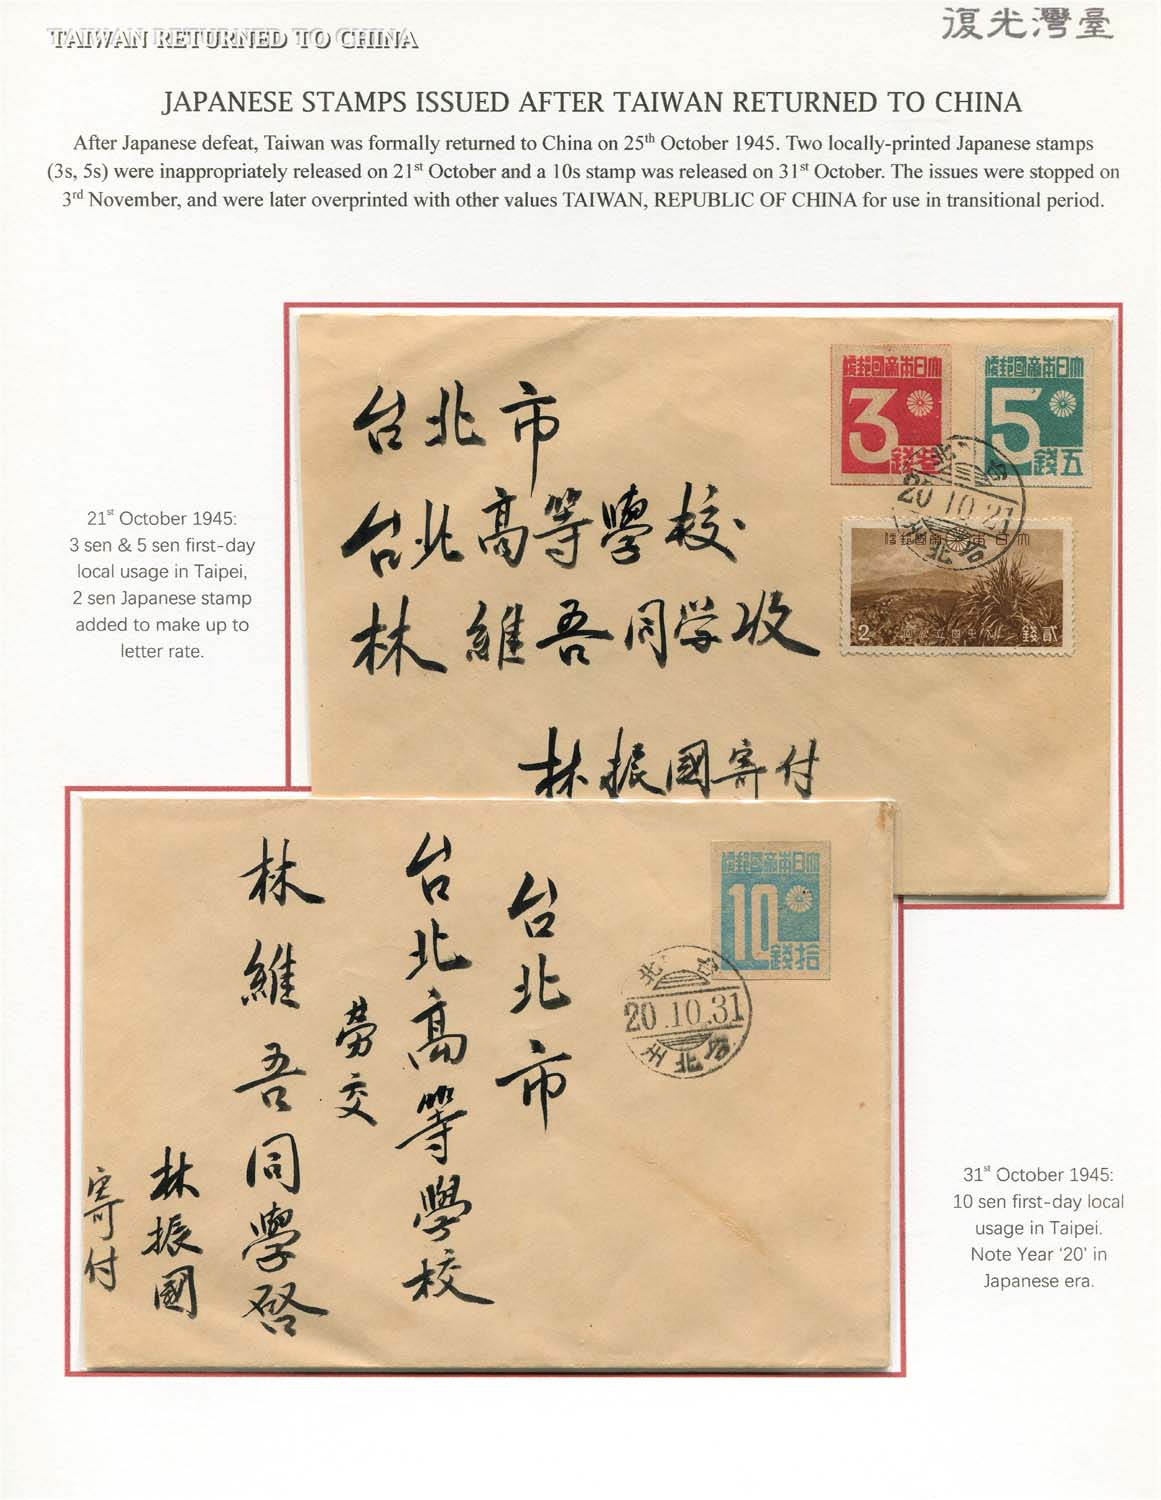 TAIWAN RETURNED TO CHINA
復光灣臺
JAPANESE STAMPS ISSUED AFTER TAIWAN RETURNED TO CHINA
After Japanese defeat, Taiwan was formally returned to China on 25th October 1945. Two locally-printed Japanese stamps
(3s, 5s) were inappropriately released on 21st October and a 10s stamp was released on 31st October. The issues were stopped on
3rd November, and were later overprinted with other values TAIWAN, REPUBLIC OF CHINA for use in transitional period.
21st October 1945:
3 sen & 5 sen first-day
local usage in Taipei,
2 sen Japanese stamp
added to make up to
letter rate.
台北市
台北高等學校
林維吾同学收
林振國寄付
便郵國帝本日大
3
錢叁
便郵國帝本日大
5
錢五
20.10.21
台北
便郵國帝本日大
2
錢貳
台北市
台北高等學校
劳交
林維吾同學啓
林振國
寄付
便郵國帝本日大
10
錢拾
20.10.31
31st October 1945:
10 sen first-day local
usage in Taipei.
Note Year ‘20’ in
Japanese era.